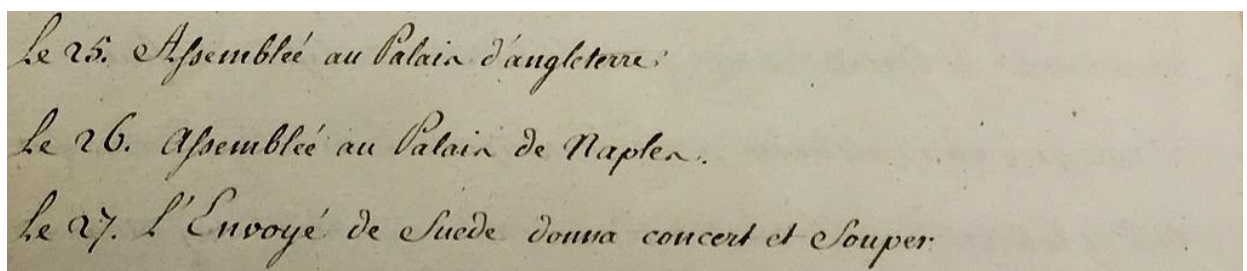 Le 25. Assembleé au Palais d'angleterre.
Le 26. Assembleé au Palais de Naples.
Le 27. L'Envoyé de Suede donna concert et Souper